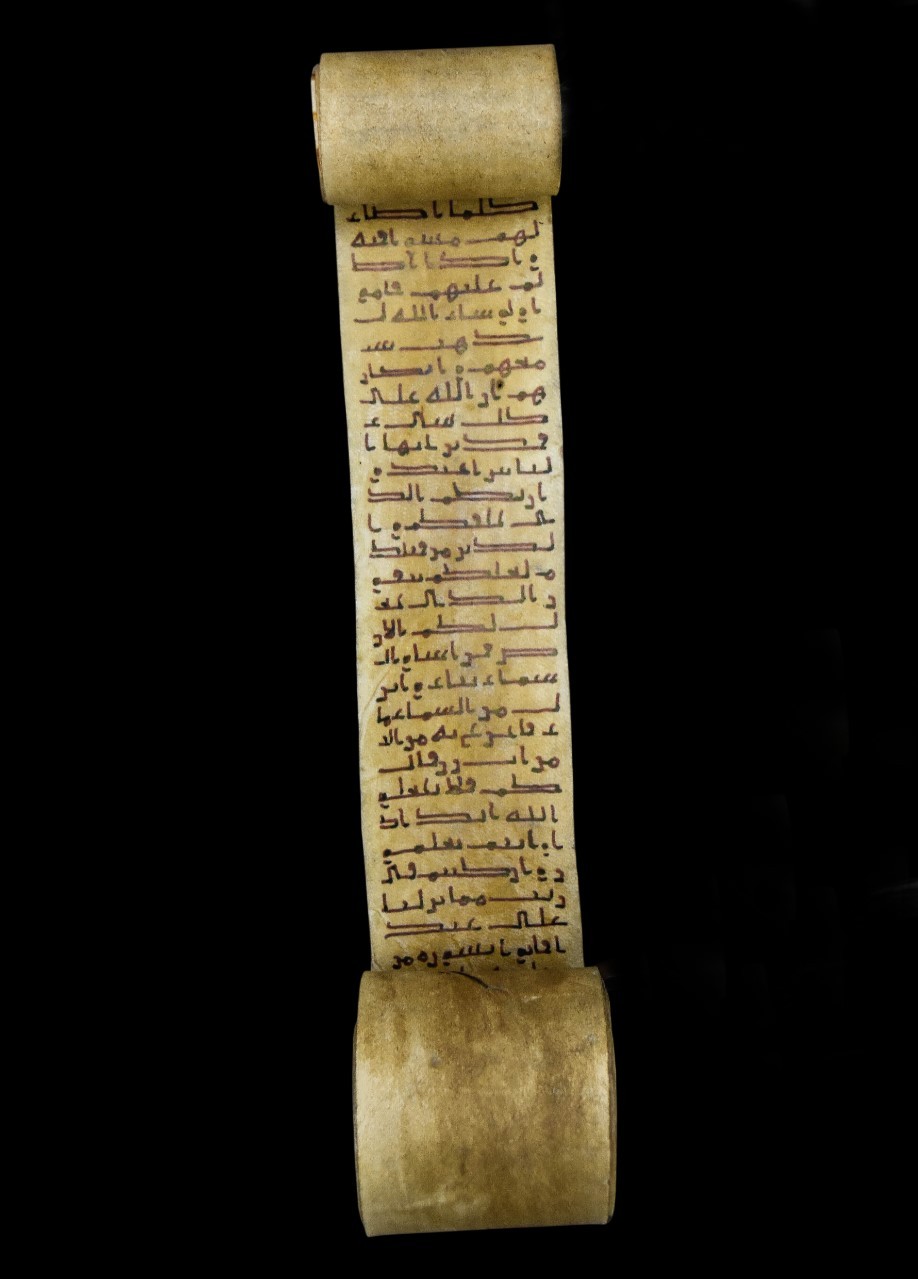 كلما اضاء
لهم مشوا فيه
و اذا اظ
لم عليهم قامو
ا و لو شاء الله لـ
ذهب بسـ
معهم و ابصار
هم ان الله على
كل شى ء
قدير يايها ا
لناس اعبدو
ا ربكم الذ
ى خلقكم و ا
لذين من قبلك
م لعلكم تتقو
ن الذى جعـ
ل لكم الار
ض فرشا و الـ
سماء بناء و انز
ل من السماء ما
ء فاخرج به من الثـ
مرت رزقا لـ
كم فلا تجعلو
ا لله اندادا
و انتم تعلمو
ن و ان كنتم فى
ريب مما نزلنا
على عبد
نا فاتوا بسورة من